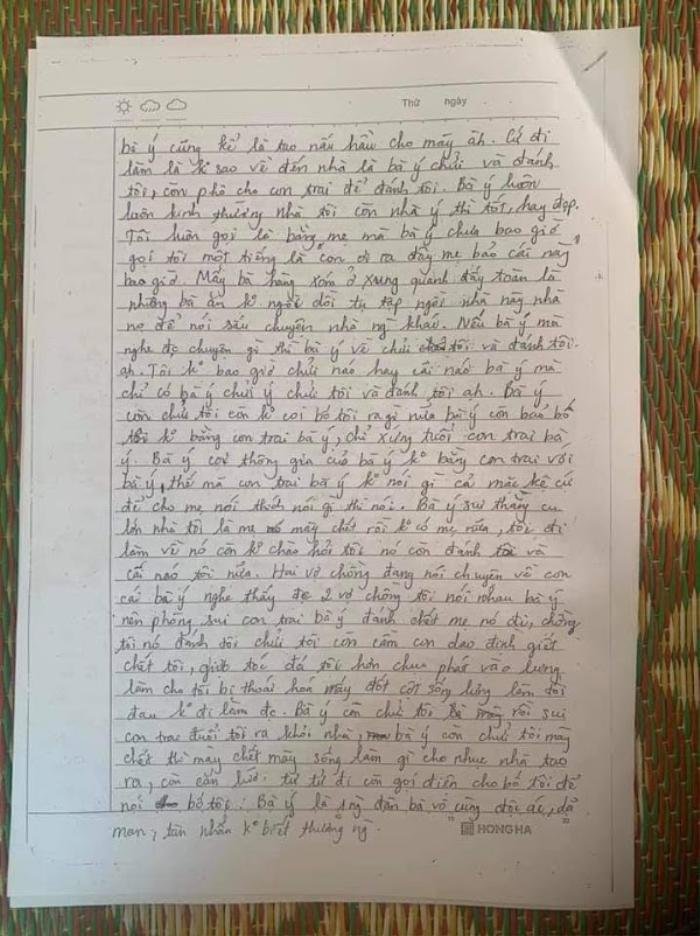 Thứ ngày
bà ý cũng kể là tao nấu hầu cho mày ăh. Cứ đi
làm là k° sao về đến nhà là bà ý chửi và đánh
tôi, còn phò cho con trai để đánh tôi. Bà ý luôn
luôn khinh thường nhà tôi còn nhà ý thì tốt, hay đẹp.
Tôi luôn gọi là bằng mẹ mà bà ý chưa bao giờ
gọi tôi một tiếng là "con ơi ra đây mẹ bảo cái này"
bao giờ. Mấy bà hàng xóm ở xung quanh đấy toàn là
những bà ăn k° ngồi dồi tụ tập ngồi nhà này nhà
nọ để nói sấu chuyện nhà ng khác. Nếu bà ý mà
nghe đc chuyện gì thì bà ý về chửi tôi và đánh tôi.
ah. Tôi k° bao giờ chửi náo hay cãi náo bà ý mà
chỉ có bà ý chửi ý chửi tôi và đánh tôi ah. Bà ý
còn chửi tôi còn k° coi bố tôi ra gì nữa bà ý còn bảo bố
tôi k° bằng con trai bà ý, chỉ xứng tuổi con trai bà
ý. Bà ý coi thông gia của bà ý k° bằng con trai với
bà ý, thế mà con trai bà ý k° nói gì cả mặc kệ cứ
để cho mẹ nói thích nói gì thì nói. Bà ý sui thằng cu
lớn nhà tôi là mẹ mày chết rồi k° có mẹ nữa, tôi đi
làm về nó còn k° chào hỏi tôi nó còn đánh tôi và
cãi náo tôi nữa. Hai vợ chồng đang nói chuyện về con
cái bà ý nghe thấy đc 2 vợ chồng tôi nói nhau bà ý
nên phòng sui con trai bà ý đánh chết mẹ nó đi, chồng
tôi nó đánh tôi chửi tôi còn cầm con dao định giết
chết tôi, giựt tóc đá tôi hơn chục phát vào lưng
làm cho tôi bị thoái hoá mấy đốt cột sống lưng làm tôi
đau k° đi làm đc. Bà ý còn chửi tôi rồi sui
con trai đuổi tôi ra khỏi nhà, bà ý còn chửi tôi mày
chết thì mày chết mày sống làm gì cho nhục nhà tao
ra, còn cắn lưỡi tử tử đi còn gọi điện cho bố tôi để
nói bố tôi. Bà ý là 1 ng đàn bà vô cùng "độc ác, dã
man, tàn nhẫn k° biết thương ng".
HONG HA